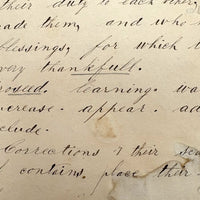 their duty to each other,
made them, and who
blessings, for which
very thankfull.
learning. wa
increase. appear. ad
clude.
Corrections & their
contains. place their